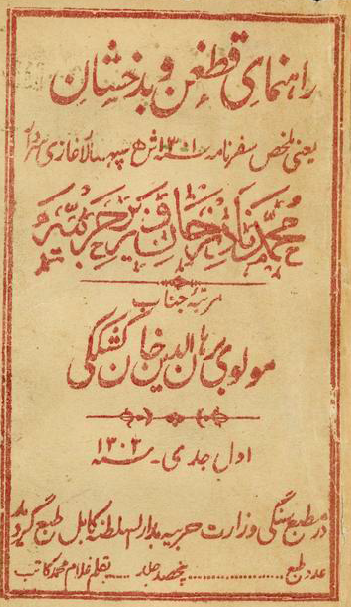 راهنمای قطغن و بدخشان
یعنی ملخص سفرنامه سنه ۱۳۰۱ ش هـ سپهسالار غازی سردار
محمد نادر خان وزیر حربیه
مرتبه جناب
مولوی برهان الدین خان کشککی
اول جدی - سنه ۱۳۰۲
در مطبع سنگی وزارت حربیه بدارالسلطنه کابل طبع گردید
عدد طبع ........ پنجصد جلد ..... بقلم غلام محمد کاتب